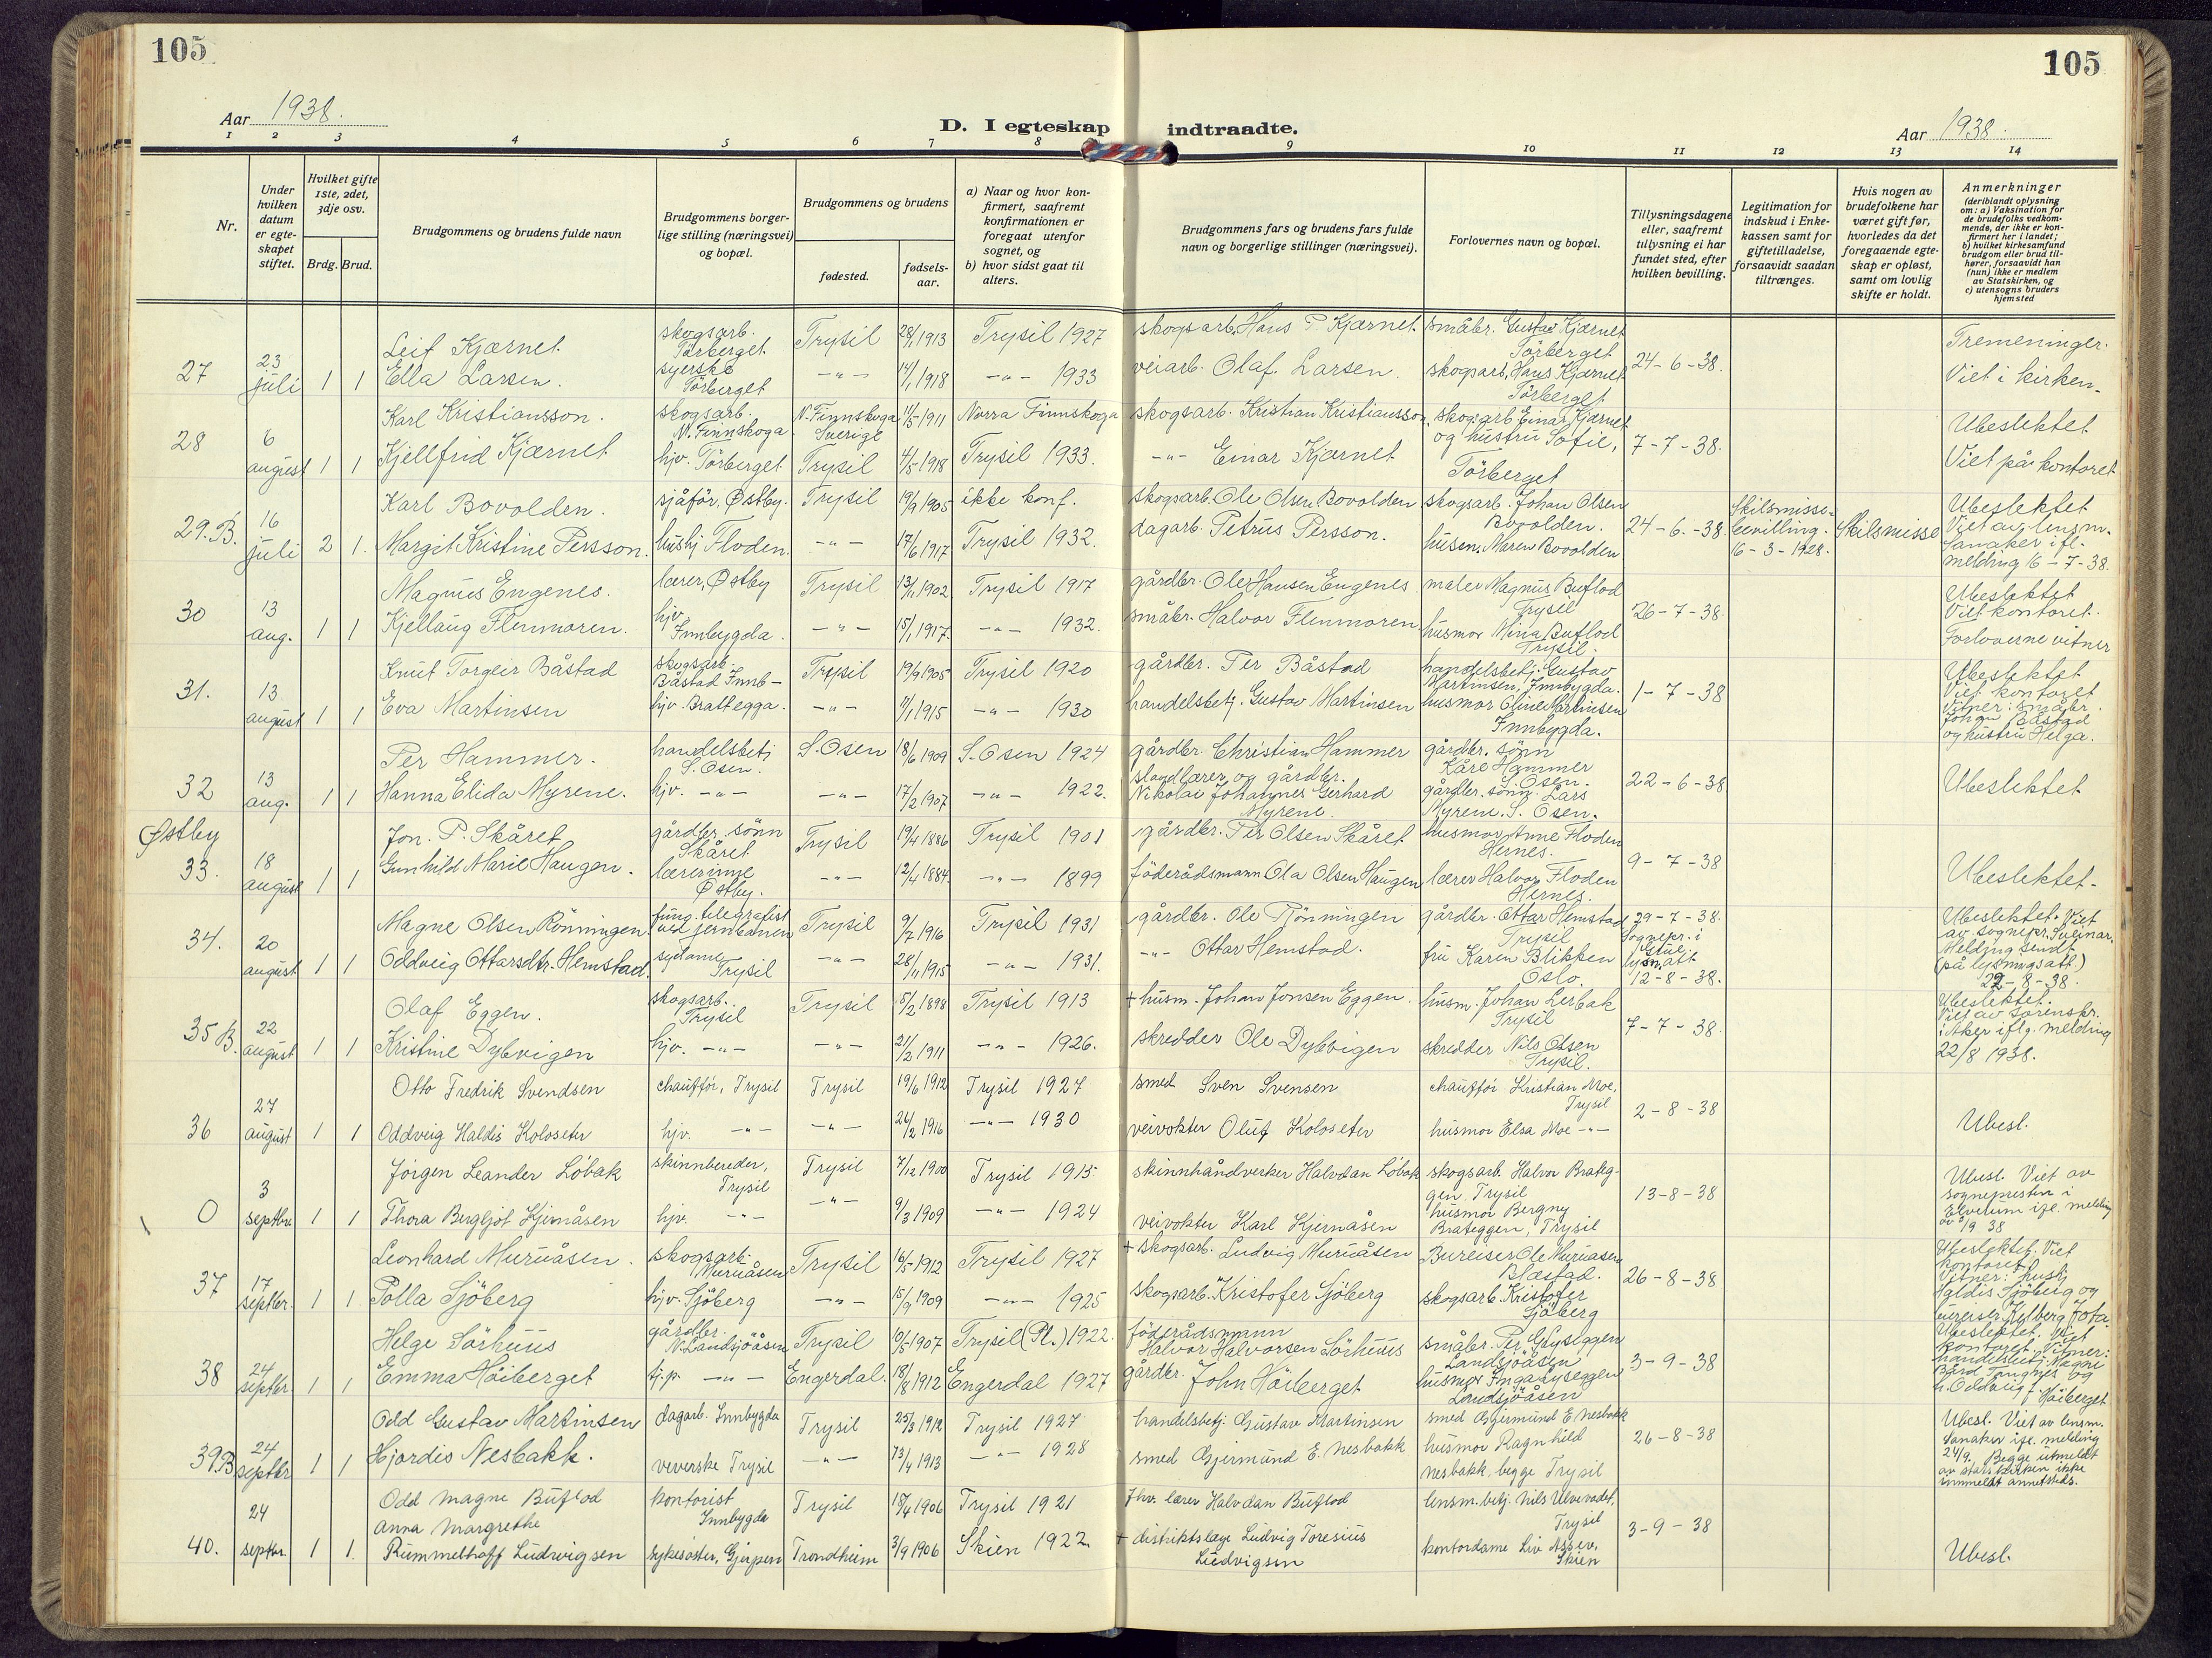 105
105
Aar 1938.
D. I egteskap indtraadte.
Aar 1938.
1 2 3 4 5 6 7 8 9 10 11 12 13 14
Nr.
Under hvilken datum er egteskapet stiftet.
Hvilket gifte 1ste, 2det, 3dje osv.
Brdg. Brud.
Brudgommens og brudens fulde navn
Brudgommens borgerlige stilling (næringsvei) og bopæl.
Brudgommens og brudens
fødested.
fødselsaar.
a) Naar og hvor konfirmert, saafremt konfirmationen er foregaat utenfor sognet, og
b) hvor sidst gaat til alters.
Brudgommens fars og brudens fars fulde navn og borgerlige stillinger (næringsvei).
Forlovernes navn og bopæl.
Tillysningsdagene eller, saafremt tillysning ei har fundet sted, efter hvilken bevilling.
Legitimation for indskud i Enkekassen samt for giftetilladelse, forsaavidt saadan tiltrænges.
Hvis nogen av brudefolkene har været gift før, hvorledes da det foregaaende egteskap er opløst, samt om lovlig skifte er holdt.
Anmerkninger (deriblandt oplysning om: a) Vaksination for de brudefolks vedkommende, der ikke er konfirmert her i landet; b) hvilket kirkesamfund brudgom eller brud tilhører, forsaavidt han (hun) ikke er medlem av Statskirken, og c) utensogns bruders hjemsted
27 23 juli 1 1
Leif Kjærnet skogsarb. Törberget Trysil 28/1 1913 Trysil 1927 skogsarb. Hans P. Kjærnet småbr. Gustav Kjærnet Törberget 24-6-38. Tremeninger.
Ella Larsen. syerske Törberget -"- 14/1 1918 -"- 1933 veiarb. Olaf Larsen. skogsarb. Hans Kjærnet Törberget Viet i kirken.
28 6 august 1 1
Karl Kristiansson. skogsarb. N. Finnskoga N. Finnskoga Sverige 11/5 1911 Norra Finnskoga skogsarb. Kristian Kristiansson. skogsarb. Einar Kjærnet og hustru Sofie, Törberget 7-7-38. Ubeslektet
Kjellfrid Kjærnet hjv. Törberget Trysil 4/5 1918 Trysil 1933. -"- Einar Kjærnet Viet på kontoret
29.B. 16 juli 2 1.
Karl Bovolden. sjåför, Østby. Trysil 19/9 1905 ikke konf. skogsarb. Ole Olsen Bovolden skogsarb. Johan Olsen Bovolden. 24-6-38. Skilsmissebevilling. 16-3-1928. Skilsmisse Ubeslektet
Margit Kristine Persson. hushj Floden. -"- 17/6 1917 Trysil 1932. dagarb. Petrus Persson. husm. Maren Bovolden Viet av lensm. Sanaker ifl. melding 16-7-38.
30 13 aug. 1 1
Magnus Engenes. lærer, Østby Trysil 13/11 1902 Trysil 1917 gårdbr. Ole Hansen Engenes maler Magnus Buflod Trysil 26-7-38. Ubeslektet
Kjellaug Flenmoren. hjv Innbygda. -"- 15/1 1917. -"- 1932. småbr. Halvor Flenmoren. husmor Mina Buflod Trysil. Viet kontoret. Forloverne vitner
31. 13 august 1 1
Knut Torgler Båstad skogsarb. Båstad Innb- Trysil 19/9 1905 Trysil 1920 gårdbr. Per Båstad handelsbetj. Gustav Martinsen, Innbygda. 1-7-38 Ubeslektet
Eva Martinsen hjv. Brattegga. -"- 11/1 1915 -"- 1930 handelsbetj. Gustav Martinsen husmor Oline Martinsen Innbygda. Viet kontoret Vitner: småbr. Johan Båstad og hustru Helga.
32 13 aug. 1 1
Per Hammer. handelsbetj S. Osen. S. Osen 18/6 1909 S. Osen 1924 gårdbr. Christian Hammer gårdbr. sönn Kåre Hammer S. Osen. 22-6-38 Ubeslektet
Hanna Elida Myrene. hjv. -"- -"- 17/2 1907 -"- 1922. landlærer og gårdbr. Nikolai Johannes Gerhard Myrene. gårdbr. sönn. Lars Myrene. S. Osen.
Østby
33. 18 august 1 1
Jon. P. Skåret gårdbr. sönn Skåret Trysil 19/4 1886 Trysil 1901 gårdbr. Per Olsen Skåret husmor Anne Floden Hernes. 9-7-38
Gunhild Marie Haugen. lærerinne Østby. -"- 12/4 1884. -"- 1899 föderådsmann Ola Olsen Haugen lærer Halvor Floden Hernes. Ubeslektet-
34. 20 august 1 1
Magne Olsen Rönningen. fung. telegrafist ved jernbanen Trysil 9/7 1916 Trysil 1931 gårdbr. Ole Rönningen gårdbr. Ottar Hemstad Trysil 29-7-38. Sognepr. i lysn. att. 12-8-38. Ubeslektet. Viet av sognepr.
Oddveig Ottarsdtr. Hemstad. sydame Trysil -"- 28/11 1915 -"- 1931. -"- Ottar Hemstad. fru Karen Blikken Oslo. Melding sendt (på lysningsatt.) 22-8-38.
35 B. 22 august 1 1
Olaf Eggen. skogsarb. Trysil Trysil 15/2 1898 Trysil 1913 + husm. Johan Jonsen Eggen. husm. Johan Lerbak Trysil 7-7-38. Ubeslektet.
Kristine Dybvigen hjv. -"- -"- 21/2 1911 -"- 1926. skredder Ole Dybvigen skredder Nils Olsen Trysil. Viet av Sorenskr. i Aker iflg. melding 22/8 1938.
36 27 august 1 1
Otto Fredrik Svendsen chauffør, Trysil Trysil 19/6 1912 Trysil 1927 smed Sven Svensen chauffør Kristian Moe, Trysil 2-8-38
Oddveig Haldis Koloseter hjv. -"- -"- 26/2 1916 -"- 1930 veivokter Oluf Koloseter husmor Elsa Moe -"- Ubesl.
0 3 septbr. 1 1
Jörgen Leander Löbak skinnbereder, Trysil Trysil 7/12 1900 Trysil 1915 skinnhåndverker Halvdan Löbak skogsarb. Halvor Brateggen. Trysil 13-8-38 Ubesl. Viet av
Thora Bergljot Kjernåsen hjv. -"- -"- 9/3 1909 -"- 1924 veivokter Karl Kjernåsen husmor Bergny Brateggen, Trysil sognepresten i Elverum ifl. melding av 3/9 38
37 17 septbr. 1 1
Leonhard Muruåsen. skogsarb. Muruåsen Trysil 16/5 1912 Trysil 1927 + skogsarb. Ludvig Muruåsen Bureiser Ole Muruåsen Blæstad. 26-8-38 Ubeslektet. Viet kontoret
Polla Sjöberg hjv. Sjöberg -"- 15/9 1909 -"- 1925 skogsarb. Kristofer Sjöberg skogsarb. Kristofer Sjöberg Vitner: hushj Haldis Sjöberg og
38 24 septbr. 1 1
Helge Sörhuus gårdbr. N. Landsjöåsen Trysil 10/5 1907 Trysil (Pl.) 1922. föderådsmann Halvor Halvorsen Sörhuus småbr. Per Gryseggen Landsjöåsen 3-9-38 Ubeslektet. Viet kontoret. Vitner:
Emma Höiberget tj.p. -"- Engerdal. 18/8 1912 Engerdal 1927 gårdbr. John Höiberget husmor Inga Gryseggen Landsjöåsen handelsbetj. Magne og Höiberget
39B 24 septbr 1 1
Odd Gustav Martinsen dagarb. Innbygda Trysil 25/3 1912 Trysil 1927 handelsbetj. Gustav Martinsen smed Gjermund E. Nesbakk 26-8-38 Ubesl. Viet av lensm.
Hjordis Nesbakk. veverske Trysil -"- 13/4 1913 -"- 1928 smed Gjermund E. Nesbakk husmor Ragnhild Nesbakk, begge Trysil Sanaker ifl. melding 24/9. Begge utmeldt av statskirken ikke innmeldt annetsteds.
40. 24 septbr. 1 1.
Odd Magne Buflod kontorist Innbygda Trysil 18/4 1906 Trysil 1921 fhv. lærer Halvdan Buflod lensm. betj. Nils Ulvevadet, Trysil 3-9-38
Anna Margrethe Rummelhoff Ludvigsen sykesöster, Gjerpen Trondheim 3/9 1906 Skien 1922. + distriktslæge Ludvig Toresius Ludvigsen kontordame Liv Asser, Skien Ubesl.